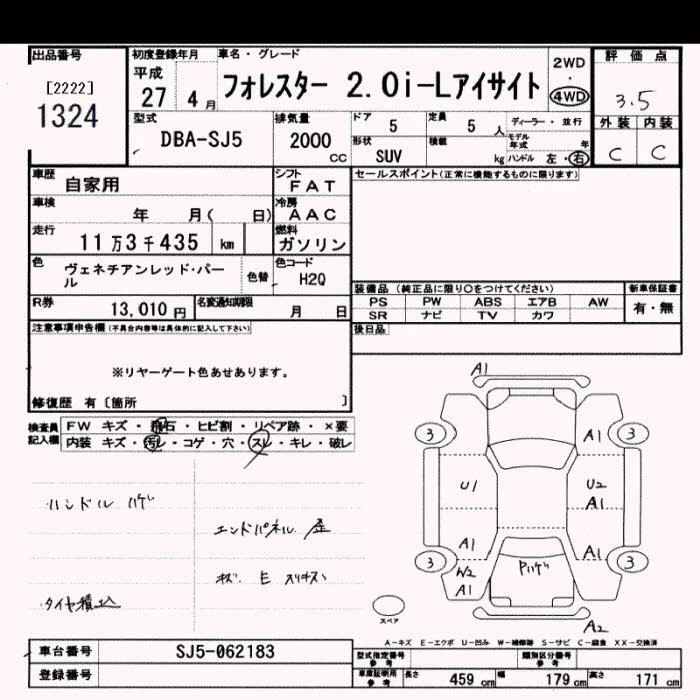 出品番号
[2222]
1324
初度登録年月
平成
27 4 月
車名・グレード
フォレスター 2.0i-Lアイサイト
2WD
・
4WD
評価点
3.5
外装 内装
C C
型式
DBA-SJ5
排気量
2000
CC
ドア
5
定員
5 人
ディーラー・並行
モデル年式 年
形状
SUV
積載
kg
ハンドル 左・右
車歴
自家用
シフト
FAT
セールスポイント(正常に機能するものに限ります)
車検
年 月( 日)
冷房
AAC
走行
11万3千435 km
燃料
ガソリン
色
ヴェネチアンレッド・パール
色替
色コード
H2Q
装備品 (純正品に限り○をつけてください)
新車保証書
PS PW ABS エアB AW
SR ナビ TV カワ
有・無
R券
13,010 円
名変通知期限
月 日
後日品
注意事項申告欄(不具合内容等は具体的に記入して下さい)
※リヤーゲート色あせあります。
修復歴 有〔箇所 〕
検査員記入欄
FW キズ・飛石・ヒビ割・リペア跡・×要
内装 キズ・汚レ・コゲ・穴・スレ・キレ・破レ
ハンドル ハゲ
エンドパネル 歪
キズ E スリキズ
タイヤ積込
A1
3 A1 3
U1 U2
A1
A1 A1
3 W2 Pハゲ 3
A1
スペア
A2
A-キズ E-エクボ U-凹み W-補修跡 S-サビ C-腐食 XX-交換済
車台番号
SJ5-062183
登録番号
型式指定番号
参考
類別区分番号
参考
車庫証明用
参考
長さ 459 cm 幅 179 cm 高さ 171 cm